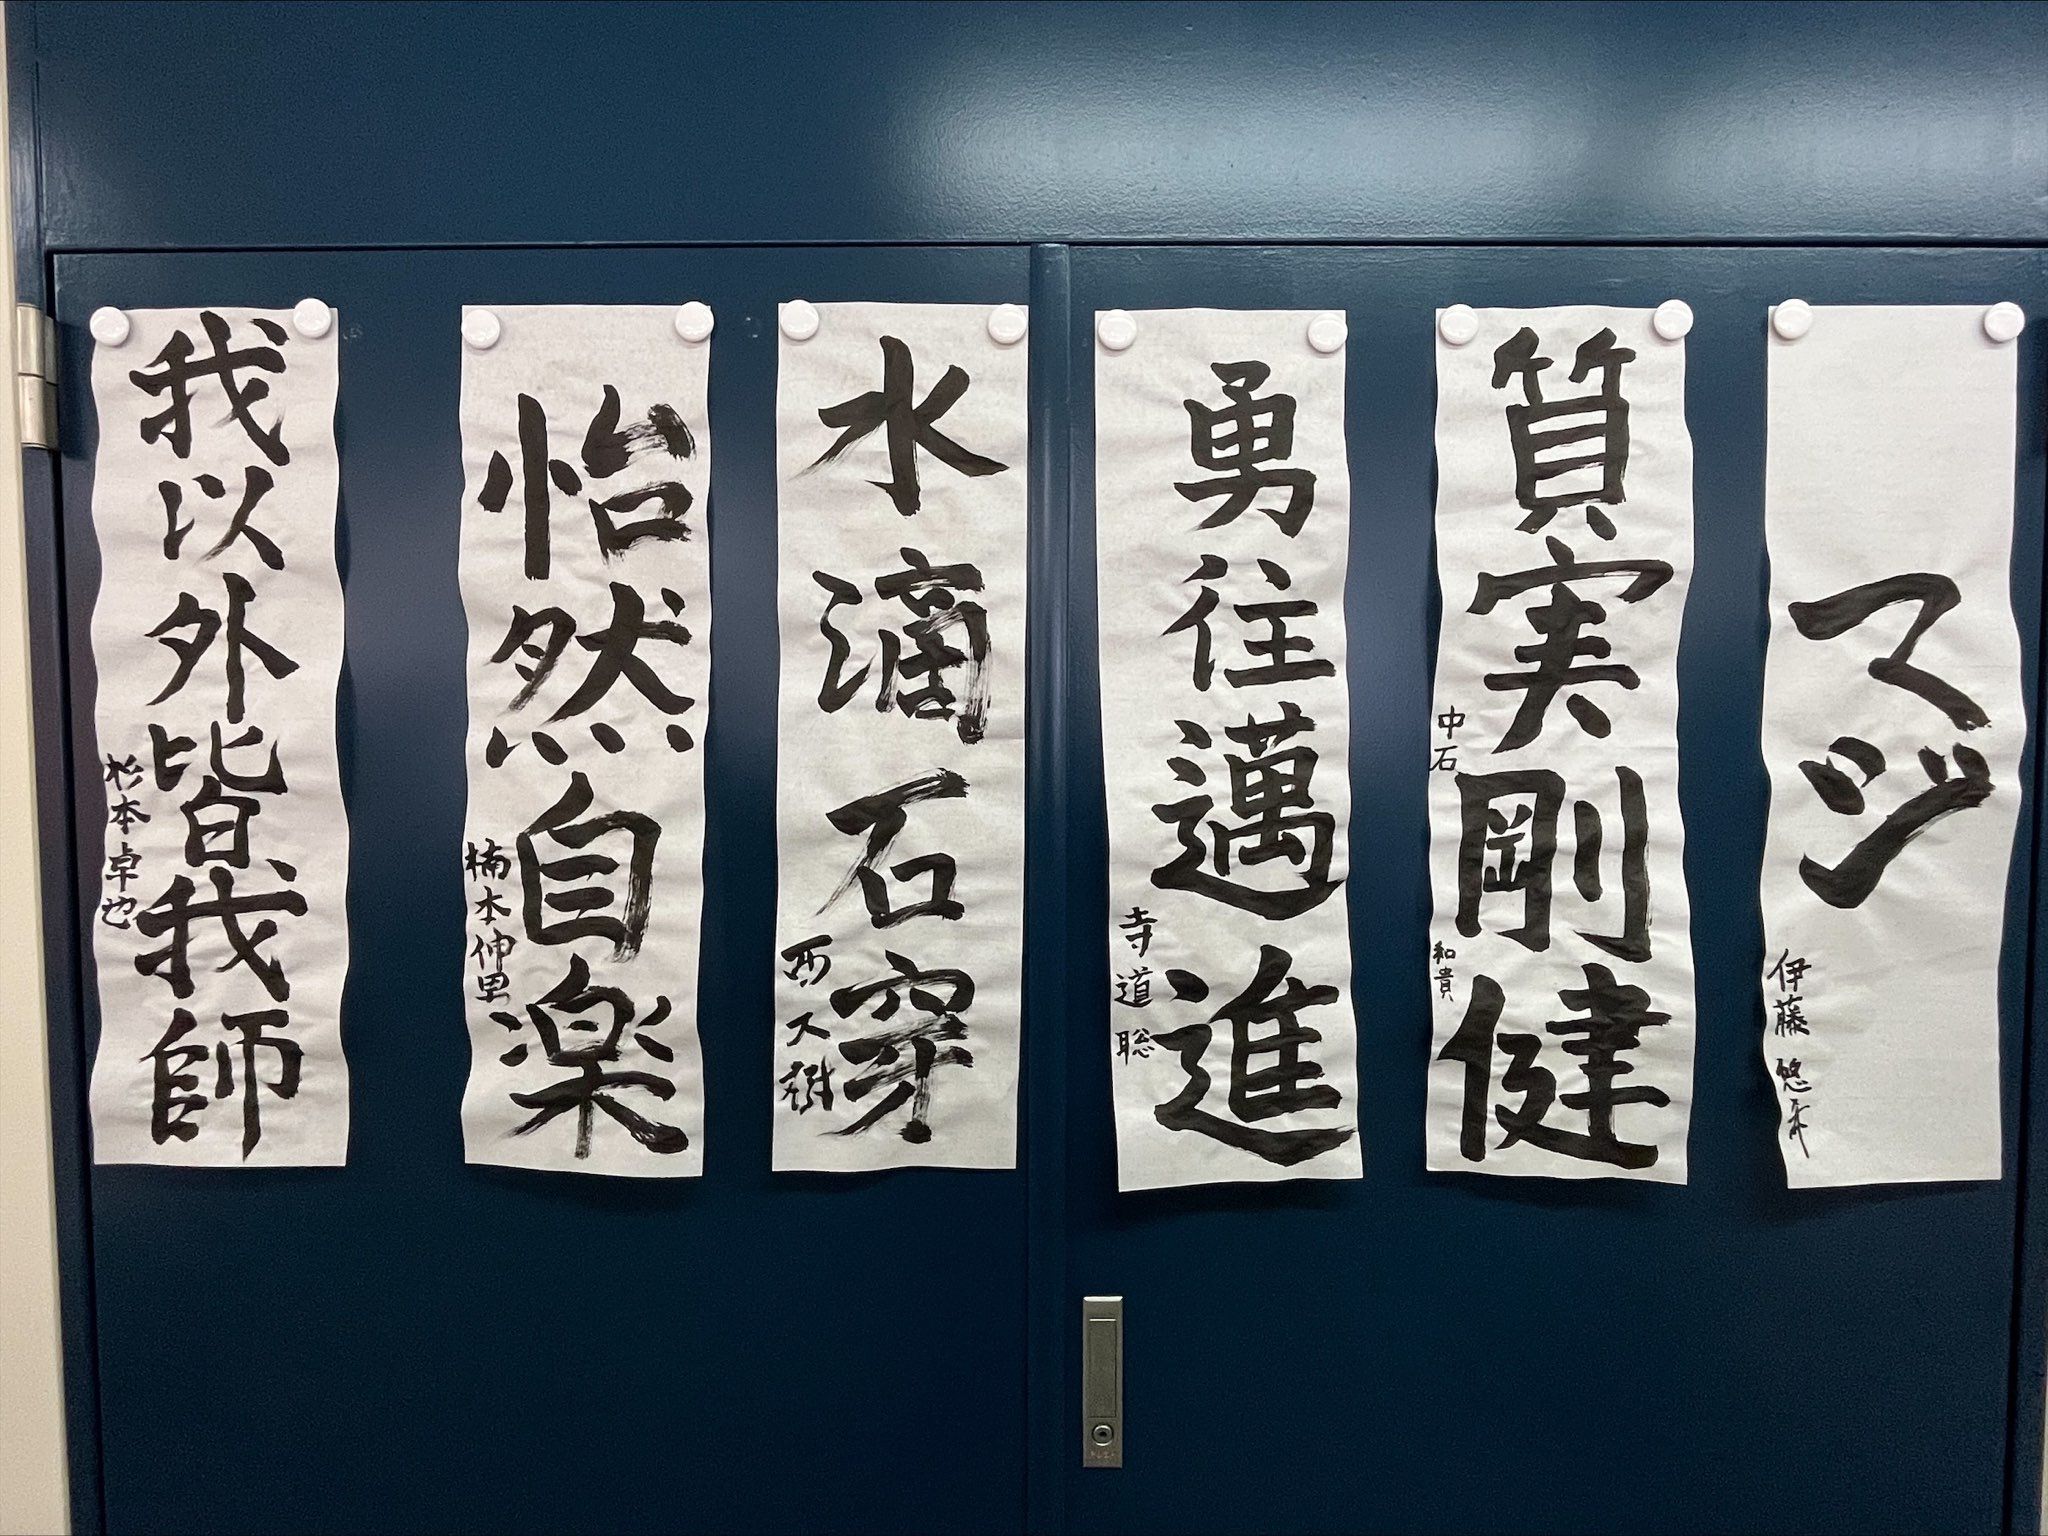 マジ
伊藤 悠
質実剛健
中石 和貴
勇往邁進
寺道 聡
水滴石穿
西 大樹
怡然自楽
楠本伸
我以外皆我師
杉本卓也